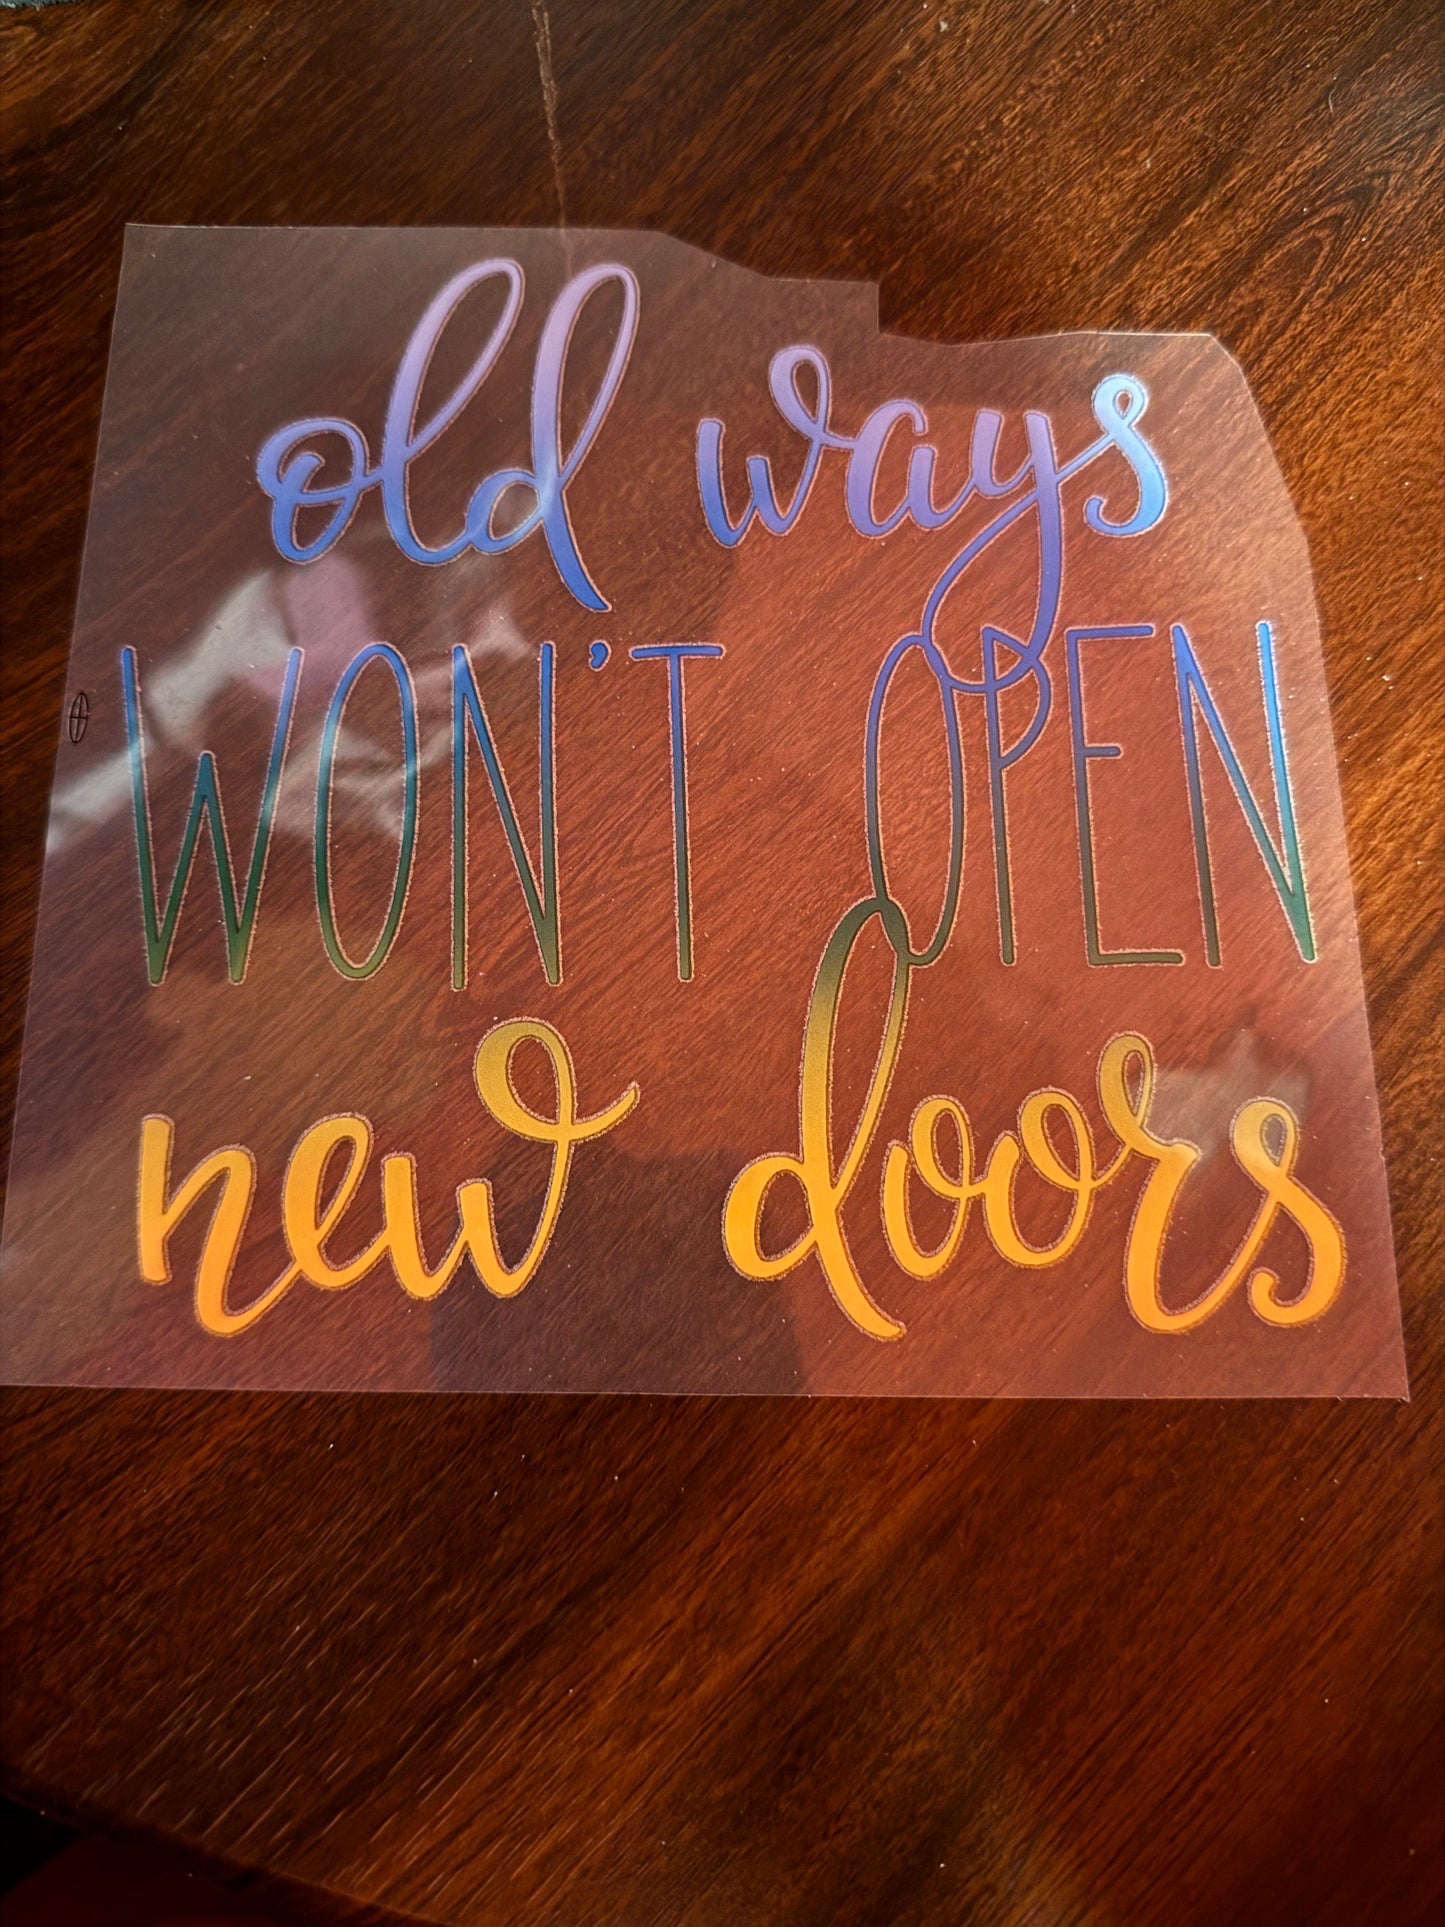 old ways
WON'T OPEN
new doors